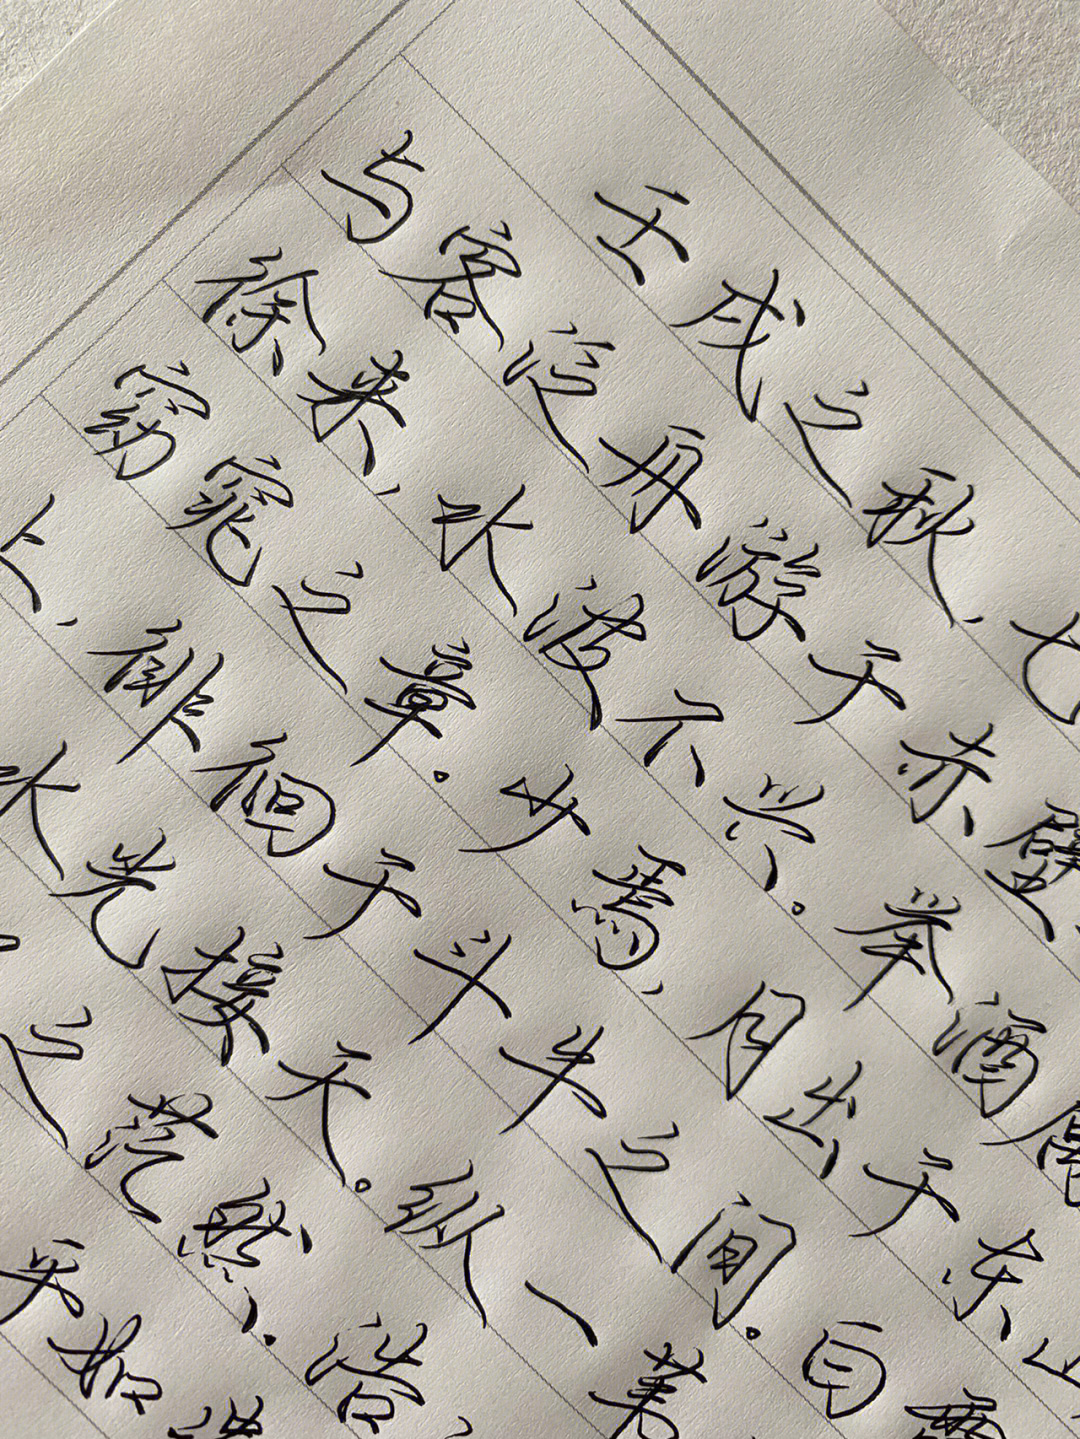 壬戌之秋，七
与客泛舟游于赤壁
徐来，水波不兴。举酒属
窈窕之章。少焉，月出于东山
上，徘徊于斗牛之间。白露
水光接天。纵一苇
之茫然。浩
乎如